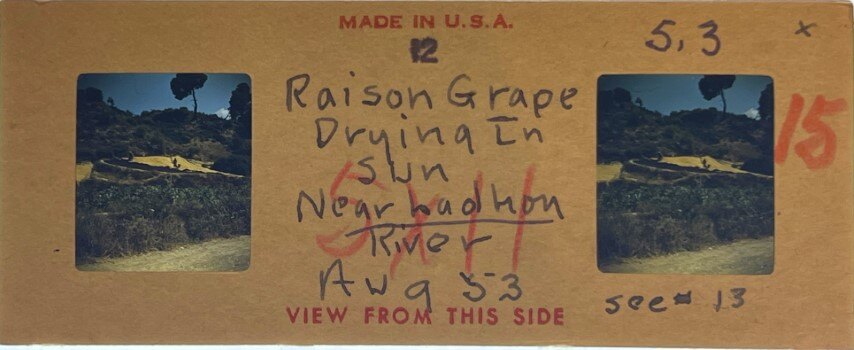 MADE IN U.S.A.
12
5,3
x
Raison Grape
Drying In
Sun
Near Ladhon
River
Aug 53
5x11
15
VIEW FROM THIS SIDE
see # 13